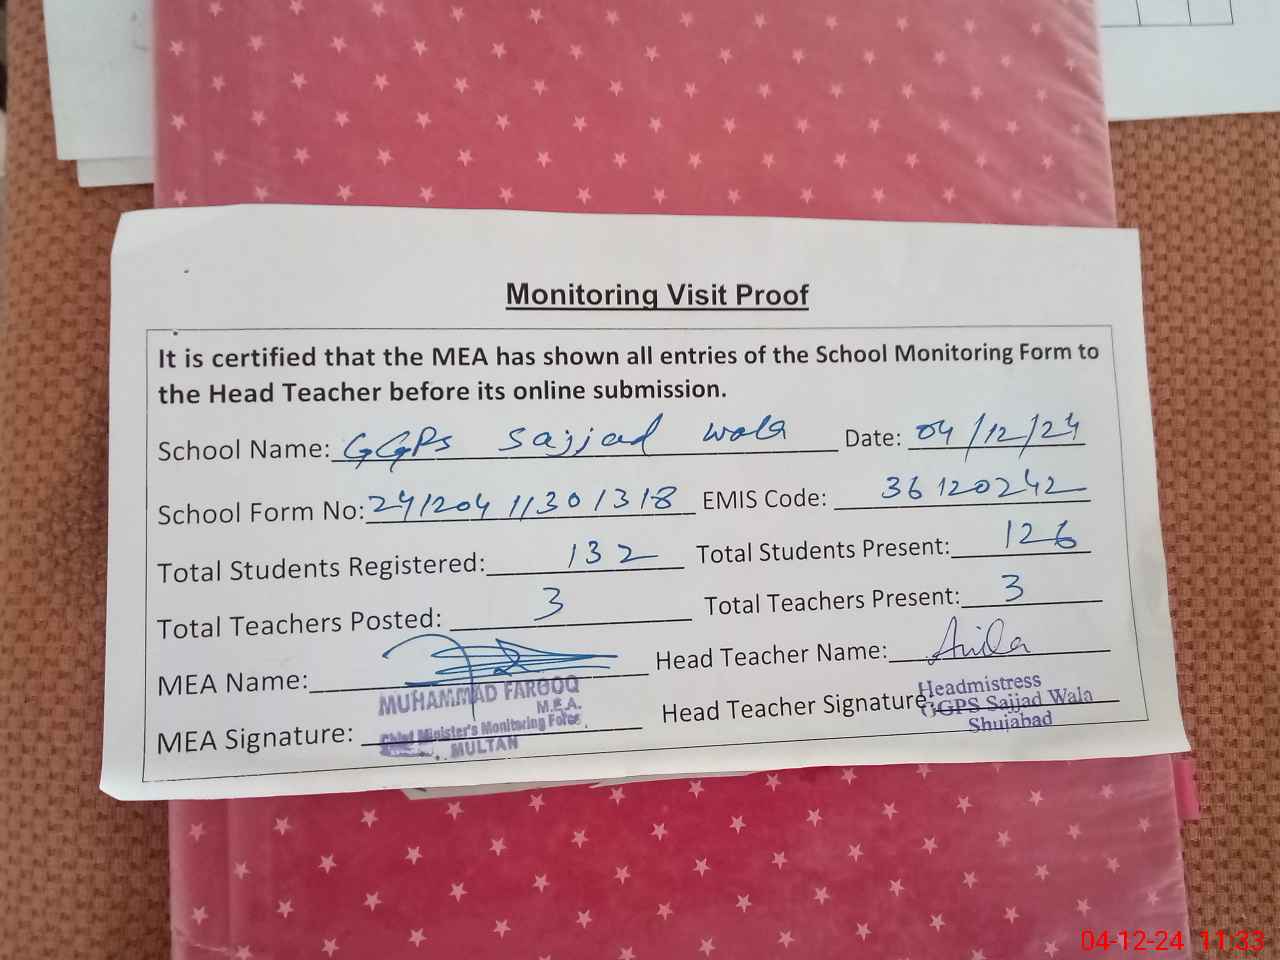 Monitoring Visit Proof
It is certified that the MEA has shown all entries of the School Monitoring Form to
the Head Teacher before its online submission.
School Name: GGPS Sajjad Wala Date: 04/12/24
School Form No: 241204 11301318 EMIS Code: 36120242
Total Students Registered: 132 Total Students Present: 126
Total Teachers Posted: 3 Total Teachers Present: 3
MEA Name: Head Teacher Name: Anila
MUHAMMAD FAROOQ
M.E.A.
Chief Minister's Monitoring Force
MULTAN
MEA Signature: Head Teacher Signature:
Headmistress
GGPS Sajjad Wala
Shujabad
04-12-24 11:33